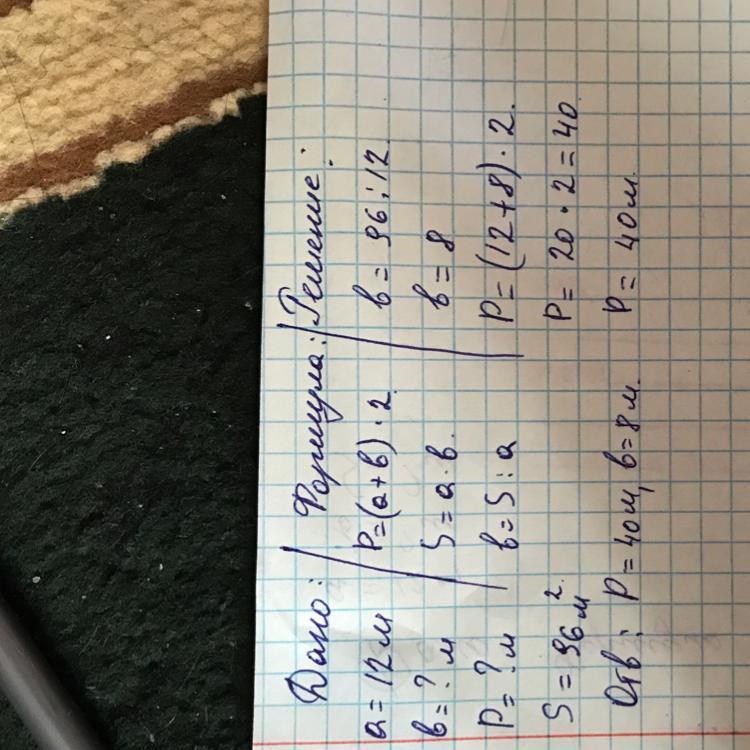 Дано: | Формула: | Решение:
а = 12 м | P = (а+в) · 2. | в = 96 : 12
в = ? м | S = а · в. | в = 8
P = ? м | в = S : а | P = (12+8) · 2.
S = 96 м² P = 20 · 2 = 40
P = 40 м.
Отв: P = 40 м, в = 8 м.